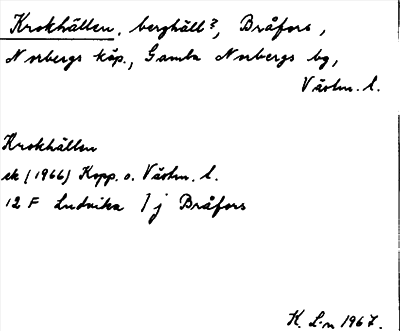 Krokhällen, berghäll?, Bråfors,
Norbergs köp., Gamla Norbergs bg,
Västm. l.
Krokhällen
ek (1966) Kopp. o. Västm. l.
12 F Ludvika I j Bråfors
K. L-n 1967.